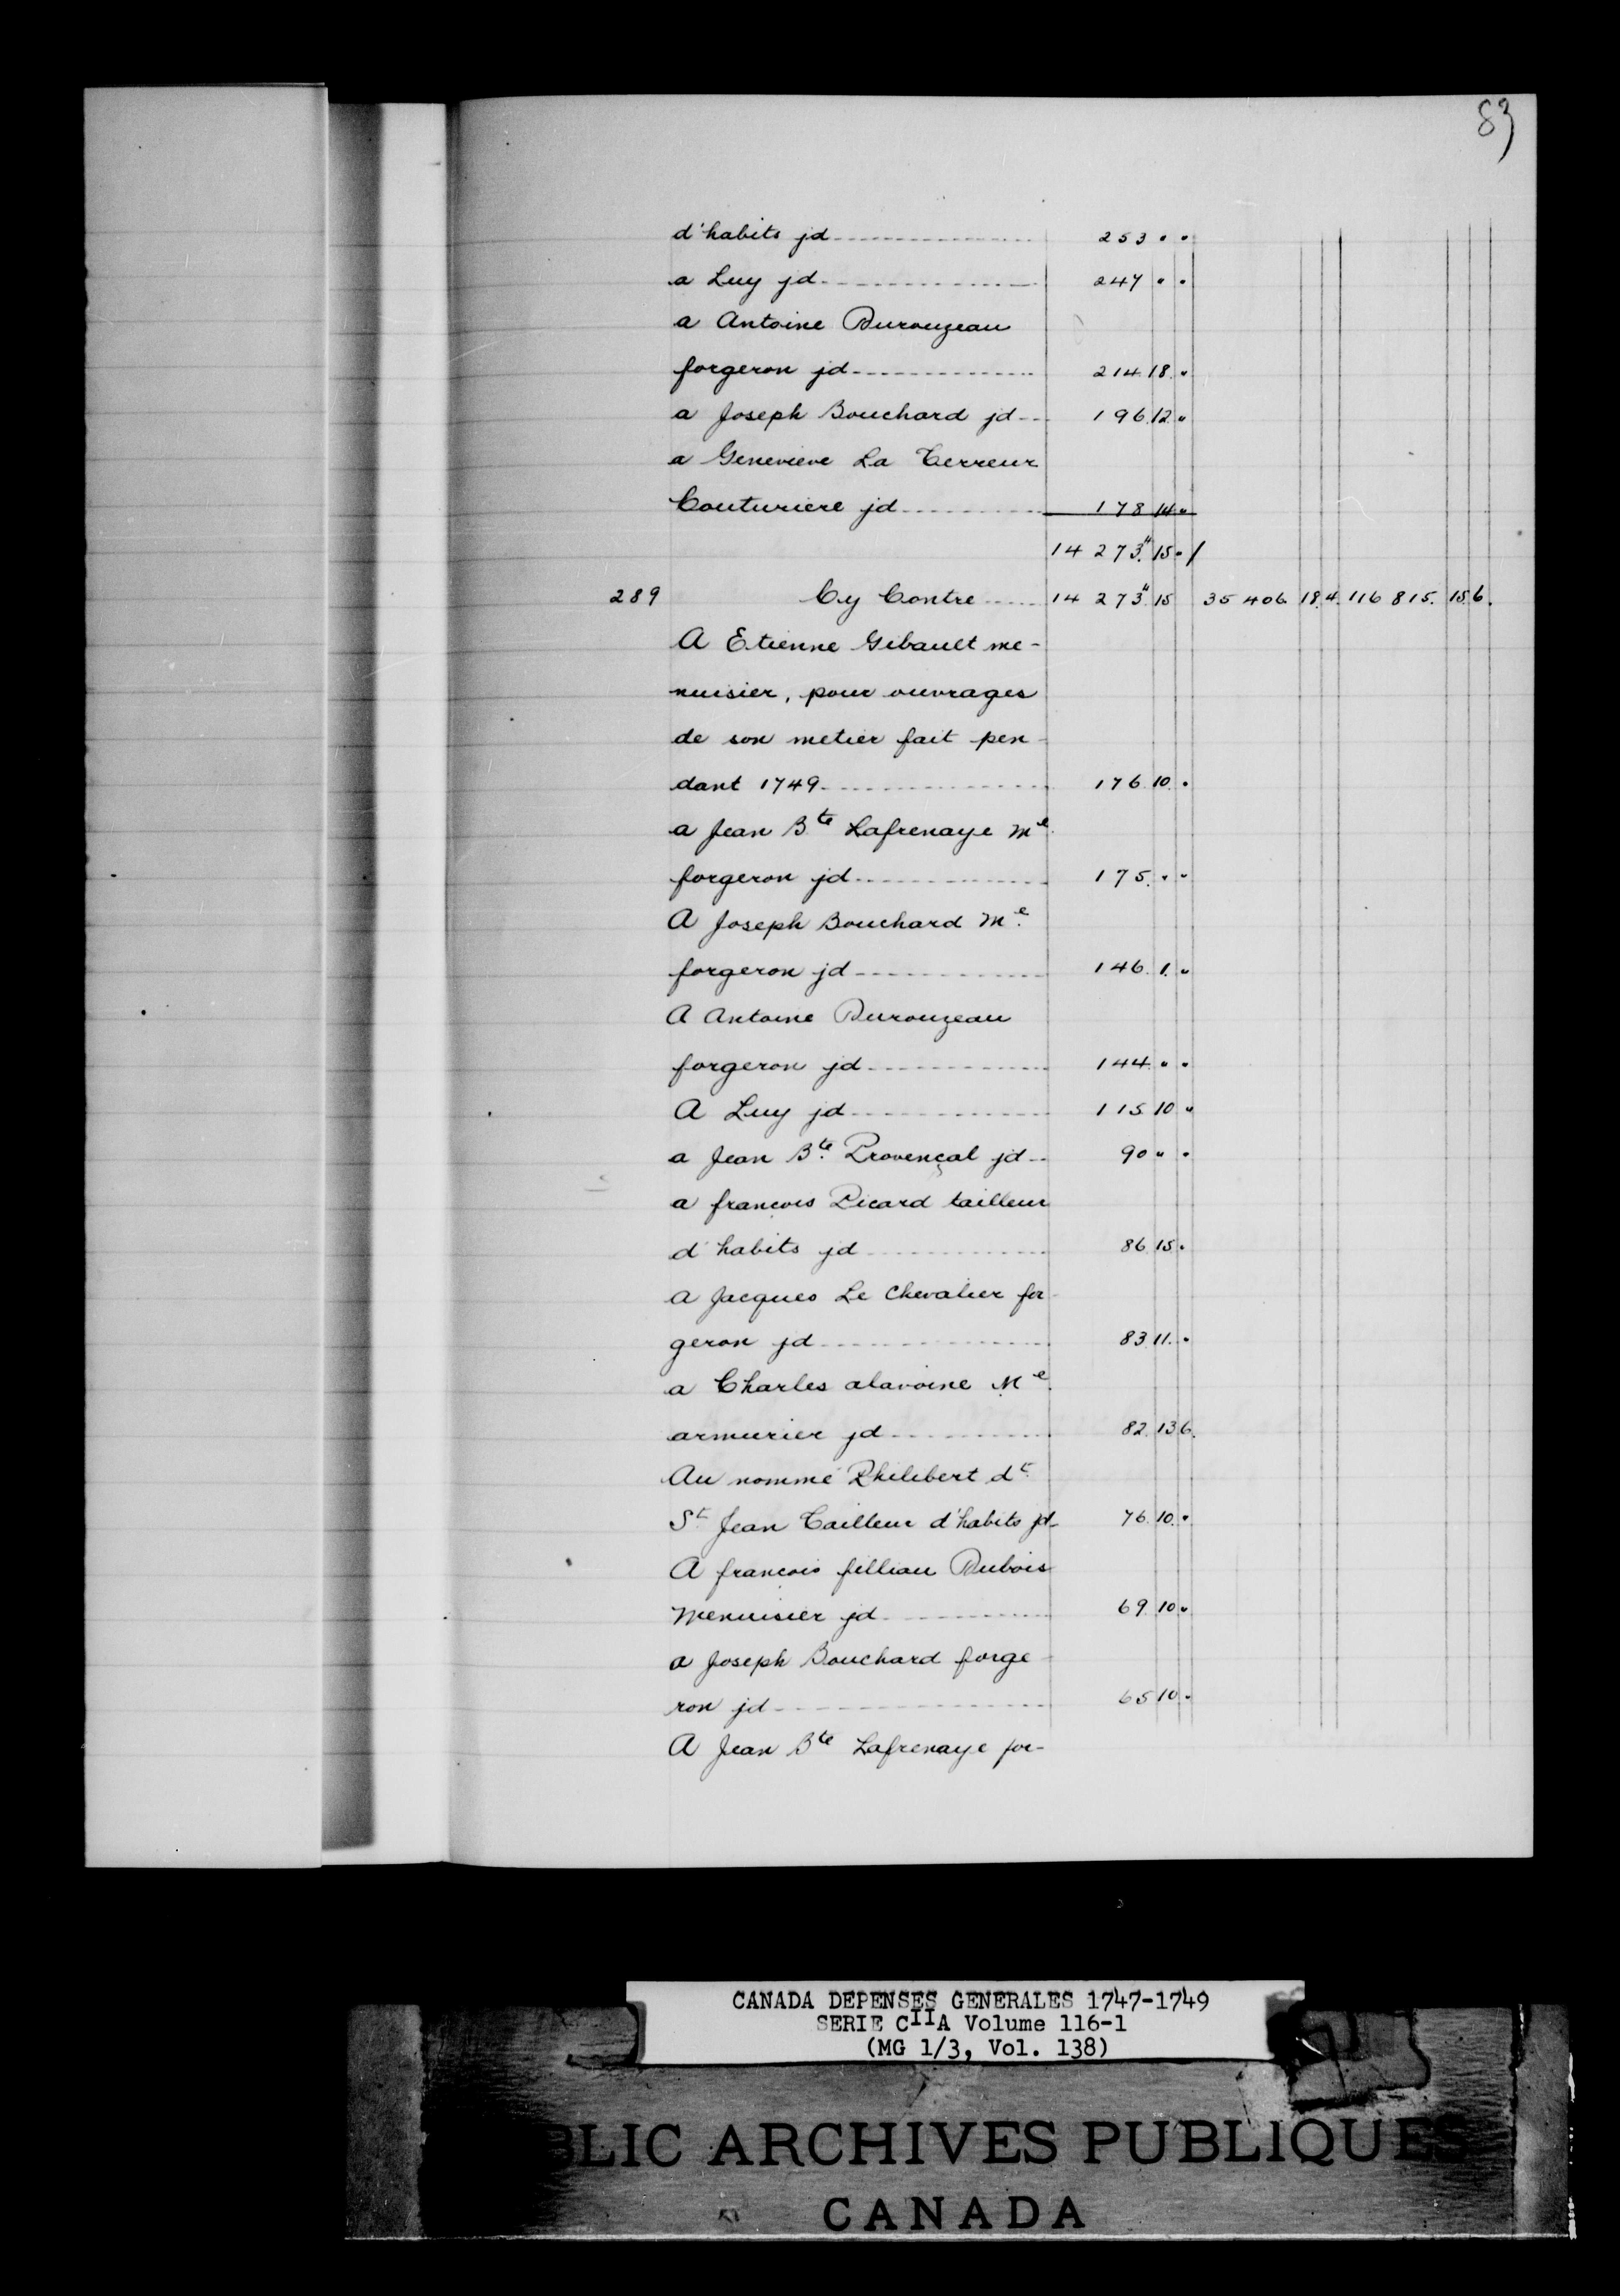 83
d'habits jd 253 " "
a Luy jd 247 " "
a Antoine Durouzeau
forgeron jd 214 18 "
a Joseph Bouchard jd 196 12 "
a Genevieve La Terreur
Couturiere jd 178 14 "
14 273." 15 " /
289 Cy Contre 14 273" 15 35 406. 18. 4. 116 815. 15 6.
A Etienne Gibault me-
nuisier, pour ouvrages
de son metier fait pen-
dant 1749 176 10. "
a Jean Bte Lafrenaye Me
forgeron jd 175. " "
A Joseph Bouchard Me
forgeron jd 146. 1. "
A Antoine Durouzeau
forgeron jd 144 " "
A Luy jd 115 10 "
a Jean Bte Provençal jd 90 " "
a françois Picard tailleur
d'habits jd 86 15. "
a Jacques Le Chevalier for-
geron jd 83 11. "
a Charles alavoine Me
armurier jd 82. 13 6.
Au nommé Philibert dt
St Jean Tailleur d'habits jd 76. 10. "
A francois filliau Dubois
Menuisier jd 69 10 "
a Joseph Bouchard forge
ron jd 65 10 "
A Jean Bte Lafrenaye for-
CANADA DEPENSES GENERALES 1747-1749
SERIE CIIA Volume 116-1
(MG 1/3, Vol. 138)
BLIC ARCHIVES PUBLIQUES
CANADA